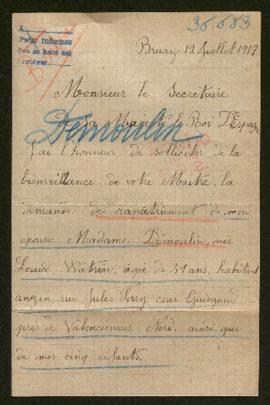 36683
Pour informer
Bruay 12 Juillet 1917
Monsieur le Secrétaire
Sa Majesté le Roi d'Espagne
Demoulin
J'ai l'honneur de solliciter de la
bienveillance de votre Maitre, la
demande de rapatriement de mon
épouse Madame Démoulin, née
Louise Watrin, agée de 41 ans, habitant
anzin rue Jules Ferry cour
près de Valenciennes Nord, ainsi que
de mes cinq enfants.